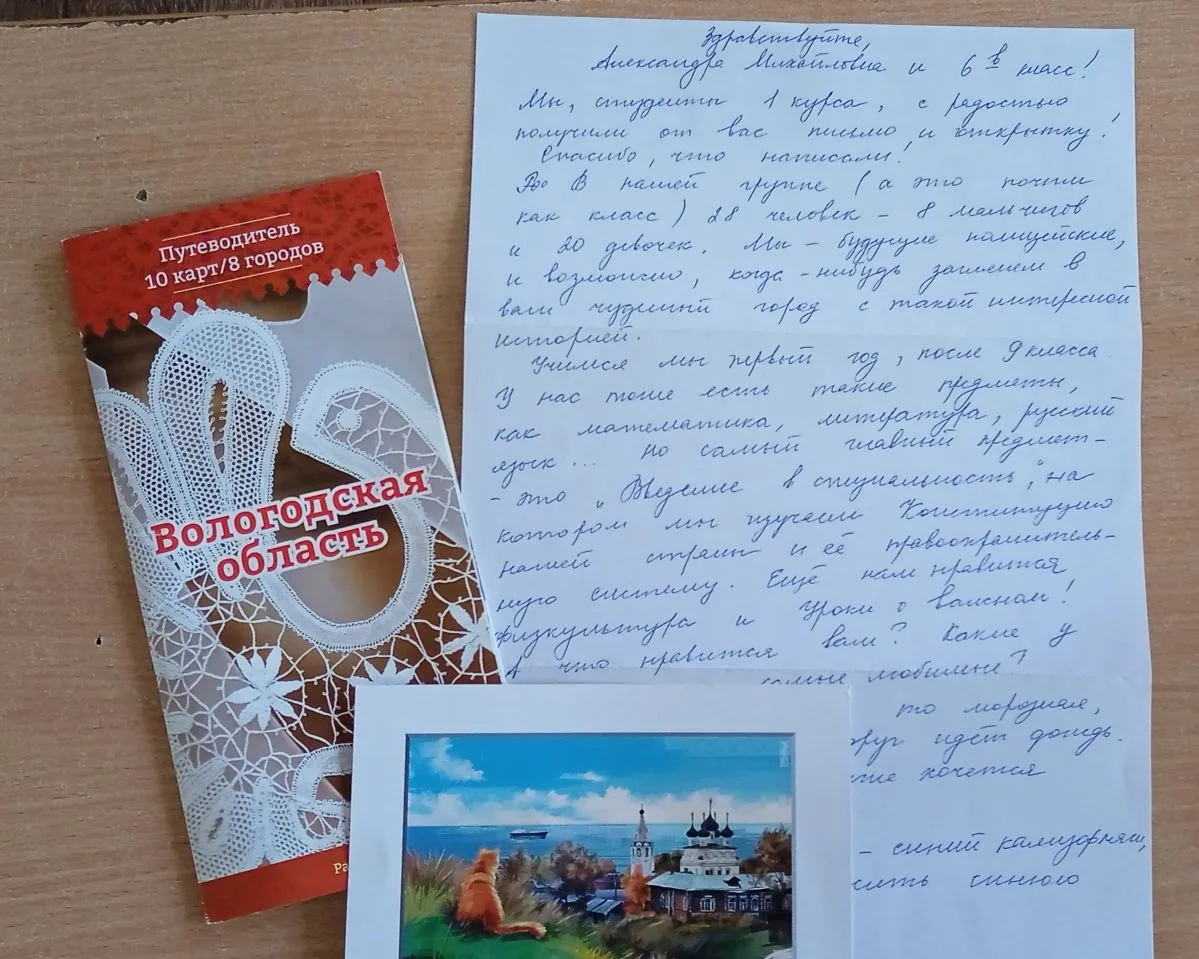 Путеводитель
10 карт/8 городов
Вологодская
область
Ра
Здравствуйте,
Александра Михайловна и 6 в класс!
Мы, студенты 1 курса, с радостью
получили от вас письмо и открытку!
Спасибо, что написали!
В нашей группе (а это почти
как класс) 28 человек – 8 мальчиков
и 20 девочек. Мы – будущие полицейские,
и возможно, когда-нибудь заглянем в
ваш чудный город с такой интересной
историей.
Учимся мы первый год, после 9 класса.
У нас тоже есть такие предметы,
как математика, литература, русский
язык... но самый главный предмет –
– это „Введение в специальность", на
котором мы изучаем Конституцию
нашей страны и её правоохранитель-
ную систему. Ещё нам нравится
физкультура и Уроки о важном!
А что нравится вам? Какие у
самые любимые?
то морозная,
друг идёт дождь.
хочется
– синий
синего